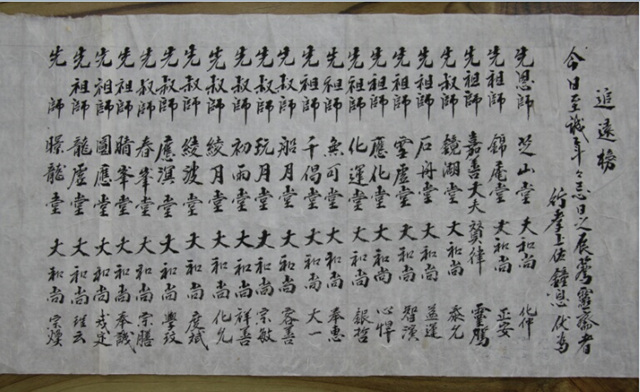 追遠榜
今日至誠年々忌日之辰薦靈齋者
行孝上佐鐘息伏為
先恩師 芝山堂 大和尚 化仲
先祖師 錦庵堂 大和尚 正安
先祖師 嘉善大夫 贊律 靈鷲
先叔師 鏡湖堂 大和尚 泰允
先祖師 石舟堂 大和尚 益運
先祖師 雲虛堂 大和尚 智演
先祖師 應化堂 大和尚 心悍
先祖師 化運堂 大和尚 銀哲
先祖師 無可堂 大和尚 奉惠
先祖師 千偈堂 大和尚 大一
先叔師 船月堂 大和尚 容善
先叔師 玩月堂 大和尚 宗敏
先叔師 初雨堂 大和尚 祥善
先叔師 綾波堂 大和尚 化允
先叔師 皎月堂 大和尚 度斌
先叔師 應溟堂 大和尚 學玟
先叔師 春峯堂 大和尚 宗膳
先祖師 晴峯堂 大和尚 奉誠
先祖師 圓應堂 大和尚 戎定
先祖師 龍虛堂 大和尚 理云
先 師 騰龍堂 大和尚 宗煥